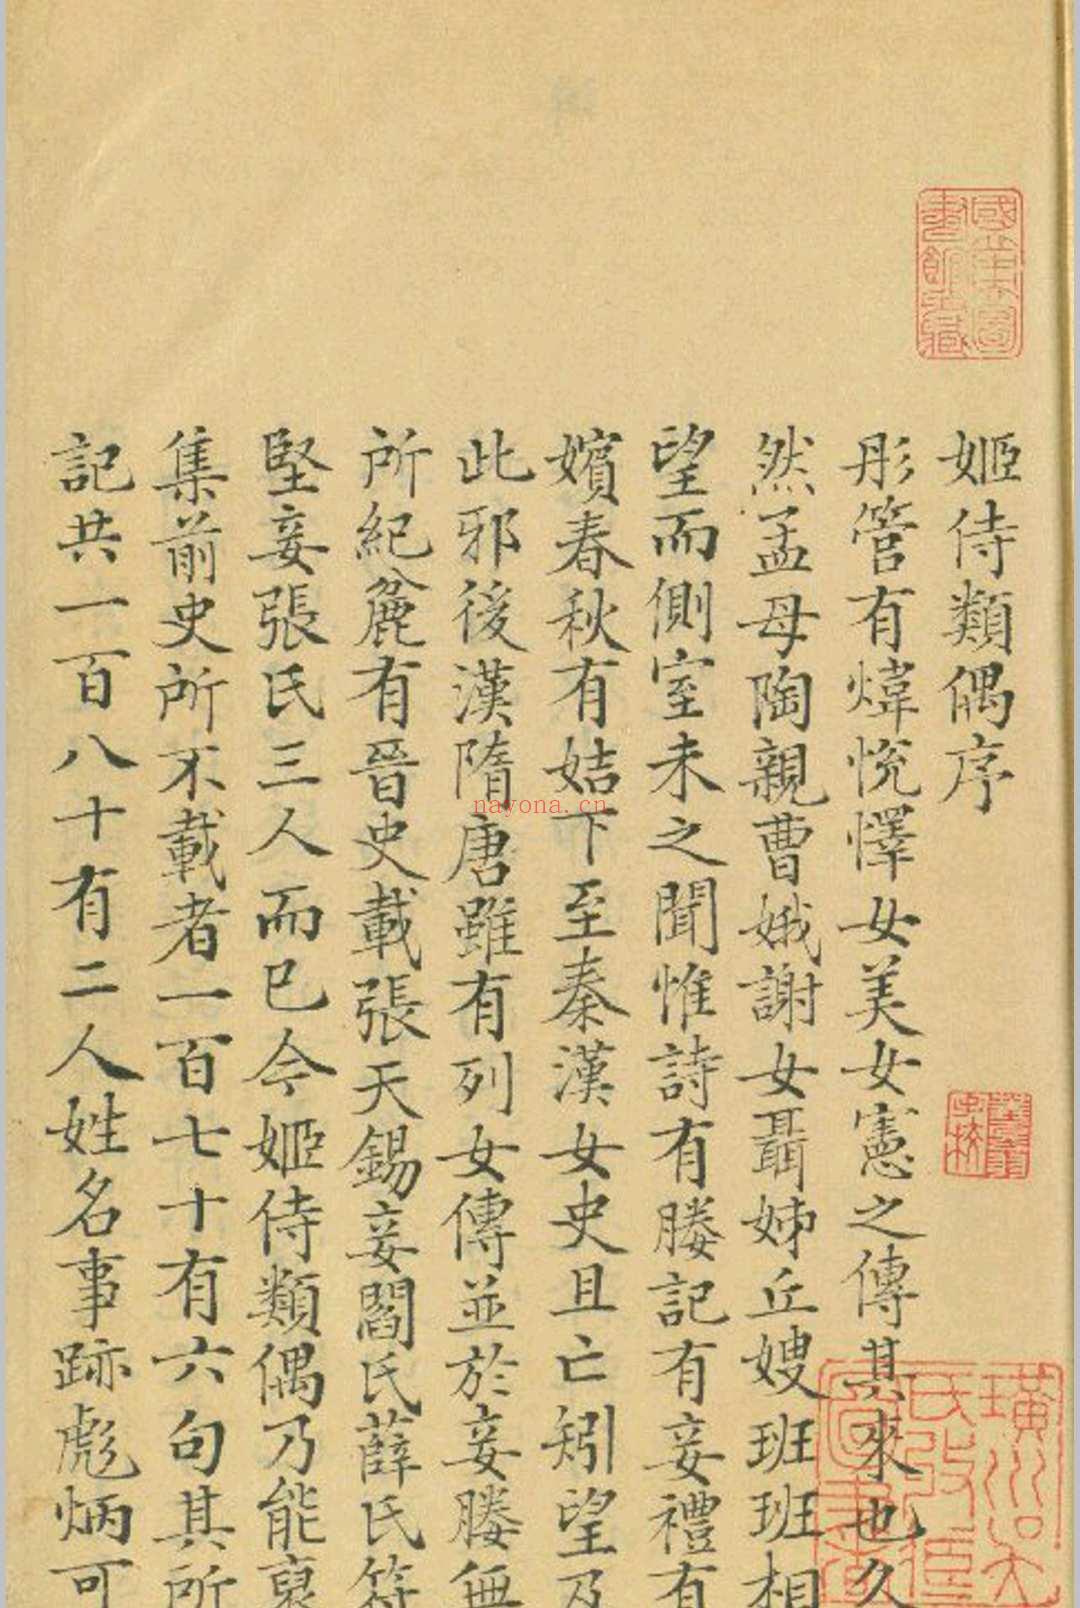 姬侍類偶序
彤管有煒悅懌女美女憲之傳其來也久
然孟母陶親曹娥謝女聶姊丘嫂班班相
望而側室未之聞惟詩有媵記有妾禮有
嬪春秋有姞下至秦漢女史且亡矧望及
此邪後漢隋唐雖有列女傳並於妾媵無
所紀麄有晉史載張天錫妾閻氏薛氏符
堅妾張氏三人而已今姬侍類偶乃能裒
集前史所不載者一百七十有六句其所
記共一百八十有二人姓名事跡彪炳可
國業圖書館藏
nayona.cn